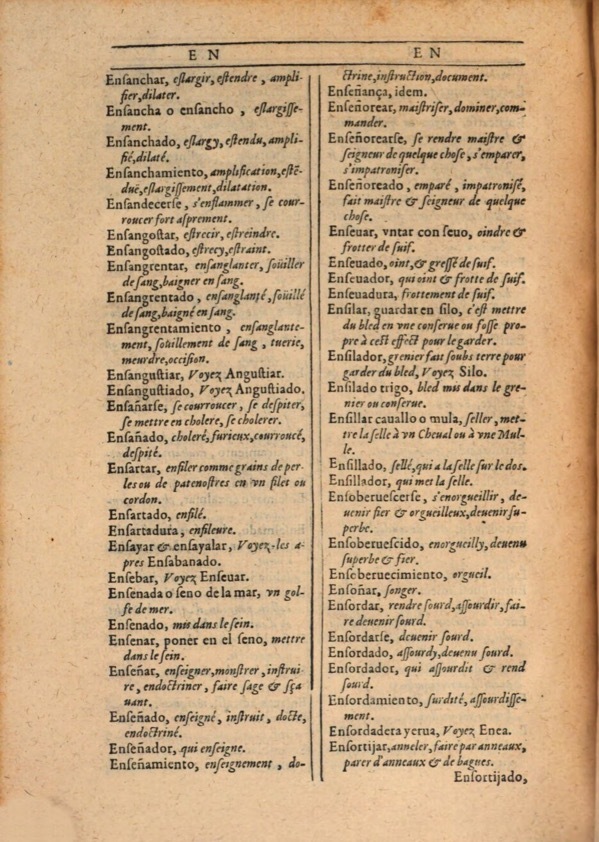 EN
Enſanchar, eſlargir, eſtendre, ampli-
fier, dilater.
Enſancha o enſancho, eſlargiſſe-
ment.
Enſanchado, eſlargy, eſtendu, ampli-
fié, dilaté.
Enſanchamiento, amplification, eſtẽ-
duë, eſlargiſſement, dilatation.
Enſandecerſe, s'enflammer, ſe cour-
roucer fort aſprement.
Enſangoſtar, eſtrecir, eſtreindre.
Enſangoſtado, eſtrecy, eſtraint.
Enſangrentar, enſanglanter, ſoüiller
de ſang, baigner en ſang.
Enſangrentado, enſanglanté, ſoüillé
de ſang, baigné en ſang.
Enſangrentamiento, enſanglante-
ment, ſoüillement de ſang, tuerie,
meurdre, occiſion.
Enſanguſtiar, Voyez Anguſtiar.
Enſanguſtiado, Voyez Anguſtiado.
Enſañarſe, ſe courroucer, ſe deſpiter,
ſe mettre en cholere, ſe cholerer.
Enſañado, choleré, furieux, courroucé,
deſpité.
Enſartar, enfiler comme grains de per-
les ou de patenoſtres en vn filet ou
cordon.
Enſartado, enfilé.
Enſartadura, enfileure.
Enſayar & enſayalar, Voyez-les a-
pres Enſabanado.
Enſebar, Voyez Enſeuar.
Enſenada o ſeno de la mar, vn gol-
fe de mer.
Enſenado, mis dans le ſein.
Enſenar, poner en el ſeno, mettre
dans le ſein.
Enſeñar, enſeigner, monſtrer, inſtrui-
re, endoctriner, faire ſage & ſça
uant.
Enſeñado, enſeigné, inſtruit, docte,
endoctriné.
Enſeñador, qui enſeigne.
Enſeñamiento, enſeignement, do-
EN
ctrine, inſtruction, document.
Enſeñança, idem.
Enſeñorear, maiſtriſer, dominer, com-
mander.
Enſeñorearſe, ſe rendre maiſtre &
ſeigneur de quelque choſe, s'emparer,
s'impatroniſer.
Enſeñoreado, emparé, impatroniſé,
fait maiſtre & ſeigneur de quelque
choſe.
Enſeuar, vntar con ſeuo, oindre &
frotter de ſuif.
Enſeuado, oint, & greſſé de ſuif.
Enſeuador, qui oint & frotte de ſuif.
Enſeuadura, frottement de ſuif.
Enſilar, guardar en ſilo, c'eſt mettre
du bled en vne conſerue ou foſſe pro-
pre à ceſt effect pour le garder.
Enſilador, grenier fait ſoubs terre pour
garder du bled, Voyez Silo.
Enſilado trigo, bled mis dans le gre-
nier ou conſerue.
Enſillar cauallo o mula, ſeller, met-
tre la ſelle à vn Cheual ou à vne Mul-
le.
Enſillado, ſellé, qui a la ſelle ſur le dos.
Enſillador, qui met la ſelle.
Enſoberueſcerſe, s'enorgueillir, de-
uenir fier & orgueilleux, deuenir ſu-
perbe.
Enſoberueſcido, enorgueilly, deuenu
ſuperbe & fier.
Enſeberuecimiento, orgueil.
Enſoñar, ſonger.
Enſordar, rendre ſourd, aſſourdir, fai-
re deuenir ſourd.
Enſordarſe, deuenir ſourd.
Enſordado, aſſourdy, deuenu ſourd.
Enſordador, qui aſſourdit & rend
ſourd.
Enſordamiento, ſurdité, aſſourdiſſe-
ment.
Enſordadera yerua, Voyez Enea.
Enſortijar, anneler, faire par anneaux,
parer d'anneaux & de bagues.
Enſortijado,